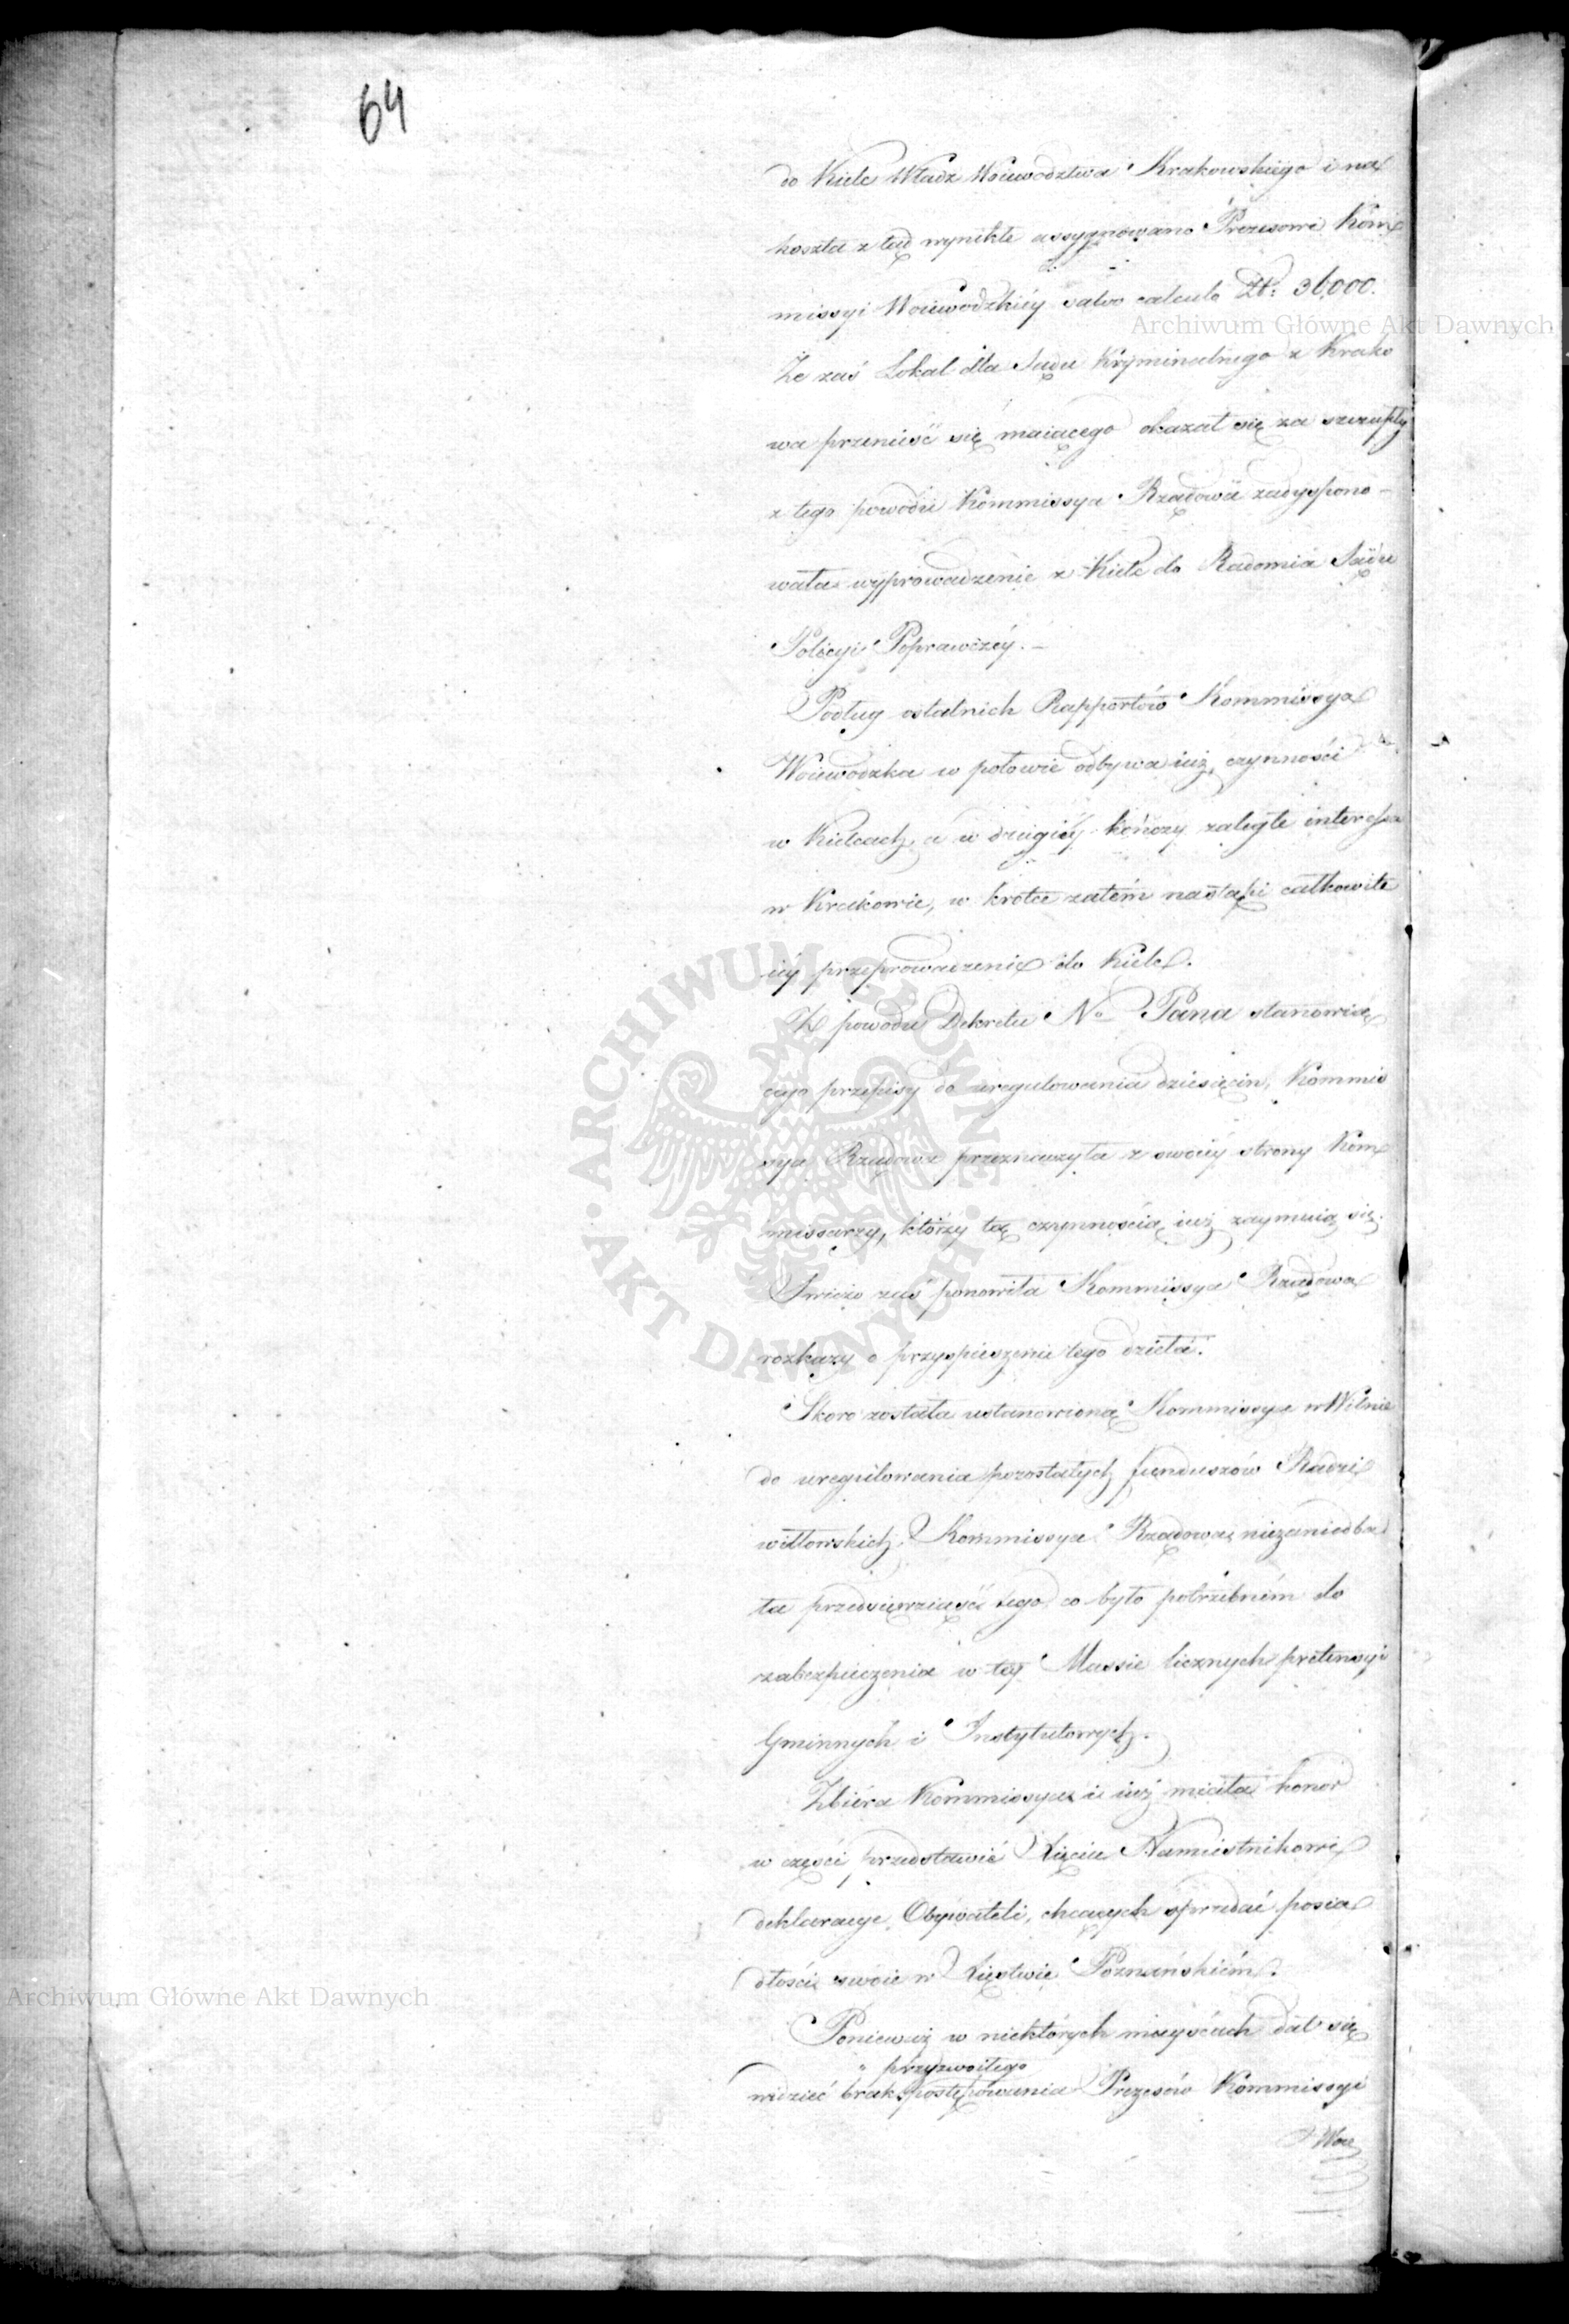 64
do Kielc Władz Woiewodztwa Krakowskiego i na
koszta z tąd wynikłe assygnowano Prezesowi Kom
missyi Woiewodzkiéy salvo calculo Zł: 36,000.
Że zaś Lokal dla Sądu Kryminalnego z Krako
wa przenieść się maiącego okazał się za szczupły
z tego powodu Kommissya Rządowa zadyspono-
wała wyprowadzenie z Kielc do Radomia Sądu
Policyi Poprawczéy.-
Podług ostatnich Rapportów Kommissya
Woiewodzka w połowie odbywa iuż czynności
w Kielcach, a w drugiéy kończy zaległe interessa
w Krakowie, w krotce zatém nastąpi całkowite
iéy przeprowadzenie do Kielc.
Z powodu Dekretu No Pana stanowią
cego przepisy do uregulowania dziesięcin, Kommis
sya Rządowa przeznaczyła z swoiéy strony Kom
missarzy, którzy tą czynnością iuż zaymuią się.
Swieżo zaś ponowiła Kommissya Rządowa
rozkazy o przyspieszenie tego dzieła.
Skoro została ustanowioną Kommissya w Wilnie
do uregulowania pozostałych funduszów Radzi
wiłłowskich, Kommissya Rządowa niezaniedba
ła przedsięwziąść tego co było potrzebném do
zabezpieczenia w téy Massie licznych pretensyi
Gminnych i Instytutowych.
Zbiéra Kommissya i iuż miała honor
w części przedstawić Xięciu Namiestnikowi
deklaracye Obywateli, chcących sprzedać posia
dłości swoie w Xięstwie Poznańskiém.
Ponieważ w niektórych mieyscach dał się
przyzwoitego
widzieć brak postępowania Prezesów Kommissyi
Woie
Archiwum Główne Akt Dawnych
Archiwum Główne Akt Dawnych
ARCHIWUM GŁÓWNE · AKT DAWNYCH ·